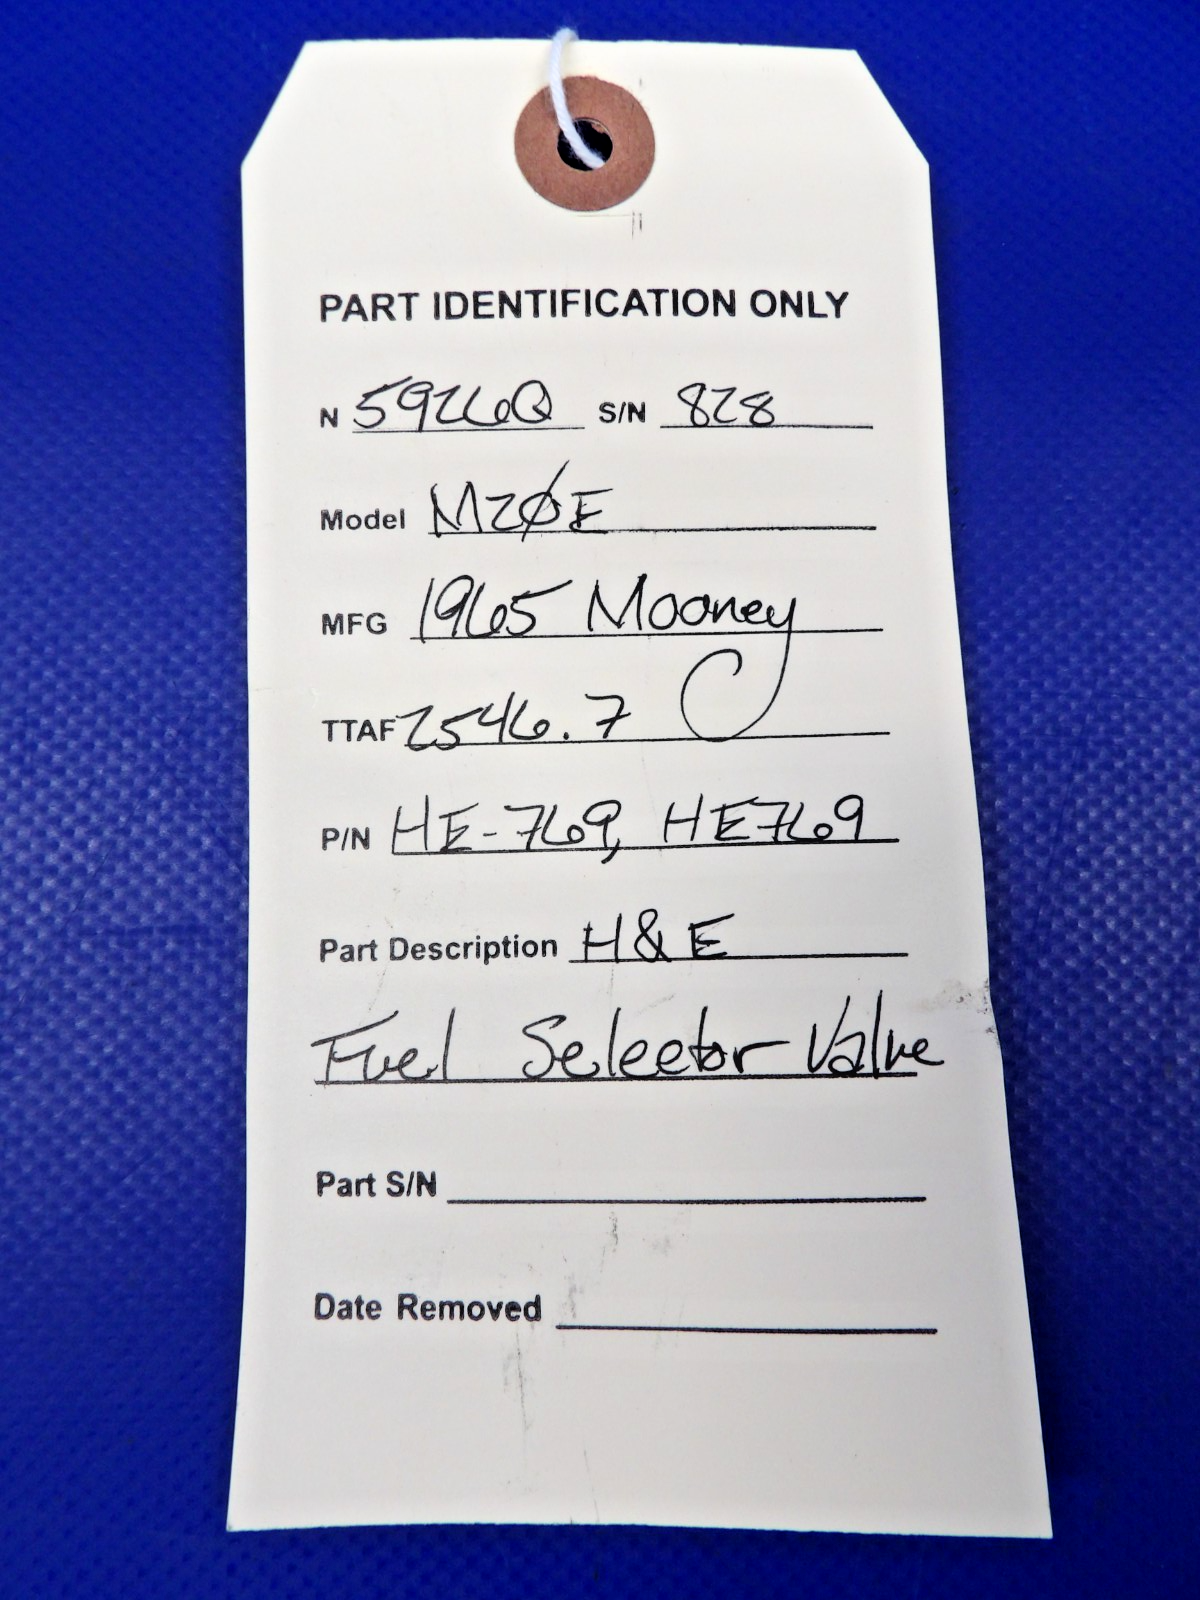 PART IDENTIFICATION ONLY
N 5926Q S/N 828
Model M20E
MFG 1965 Mooney
TTAF 2546.7
P/N HE-769, HE769
Part Description H&E
Fuel Selector Valve
Part S/N
Date Removed